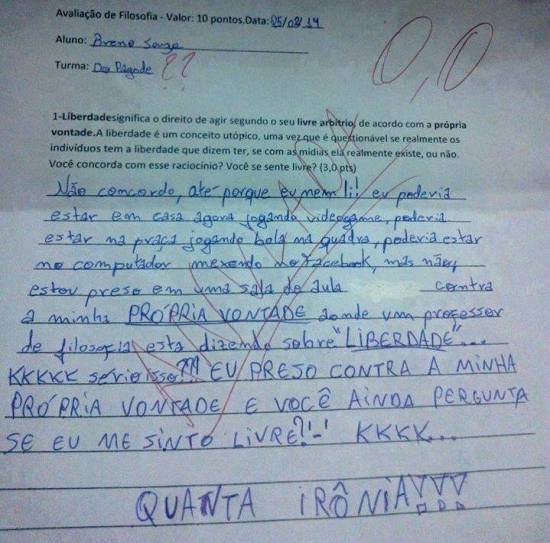 Avaliação de Filosofia - Valor: 10 pontos.Data: 05/08/14
Aluno: Breno Souza
Turma: Do Pagode ??
0,0
1-Liberdadesignifica o direito de agir segundo o seu livre arbítrio, de acordo com a própria
vontade.A liberdade é um conceito utópico, uma vez que é questionável se realmente os
indivíduos tem a liberdade que dizem ter, se com as mídias ela realmente existe, ou não.
Você concorda com esse raciocínio? Você se sente livre? (3,0 pts)
Não concordo, até porque eu nem li! eu poderia
estar em casa agora jogando videogame, poderia
estar na praça jogando bola na quadra, poderia estar
no computador mexendo no facebook, mas não,
estou preso em uma sala de aula contra
a minha PRÓPRIA VONTADE aonde um professor
de filosofia esta dizendo sobre "LIBERDADE"...
KKKKK sério isso?!! EU PRESO CONTRA A MINHA
PRÓPRIA VONTADE E VOCÊ AINDA PERGUNTA
SE EU ME SINTO LIVRE?'-' KKKK...
QUANTA IRÔNIA!!!